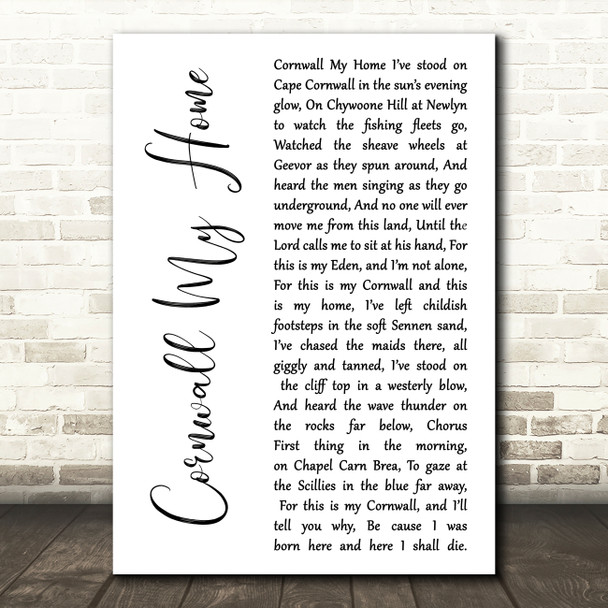 Cornwall My Home
Cornwall My Home I've stood on
Cape Cornwall in the sun's evening
glow, On Chywoone Hill at Newlyn
to watch the fishing fleets go,
Watched the sheave wheels at
Geevor as they spun around, And
heard the men singing as they go
underground, And no one will ever
move me from this land, Until the
Lord calls me to sit at his hand, For
this is my Eden, and I'm not alone,
For this is my Cornwall and this
is my home, I've left childish
footsteps in the soft Sennen sand,
I've chased the maids there, all
giggly and tanned, I've stood on
the cliff top in a westerly blow,
And heard the wave thunder on
the rocks far below, Chorus
First thing in the morning,
on Chapel Carn Brea, To gaze at
the Scillies in the blue far away,
For this is my Cornwall, and I'll
tell you why, Be cause I was
born here and here I shall die.